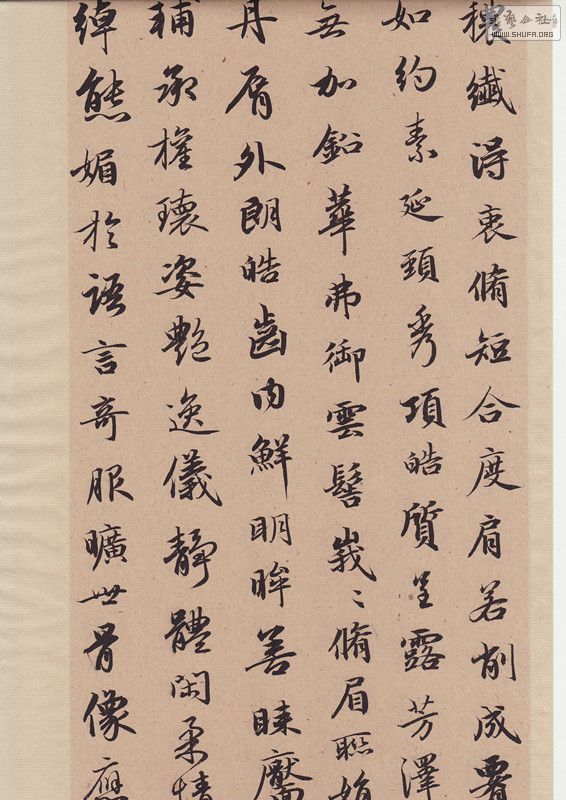 穠纖得衷脩短合度肩若削成
如約素延頸秀項皓質呈露芳澤
無加鉛華弗御雲髻峩〻脩眉聯娟
丹脣外朗皓齒内鮮明眸善睞靨
輔承權瓌姿艷逸儀靜體閑柔情
綽態媚於語言奇服曠世骨像應
書藝公社
WWW.SHUFA.ORG